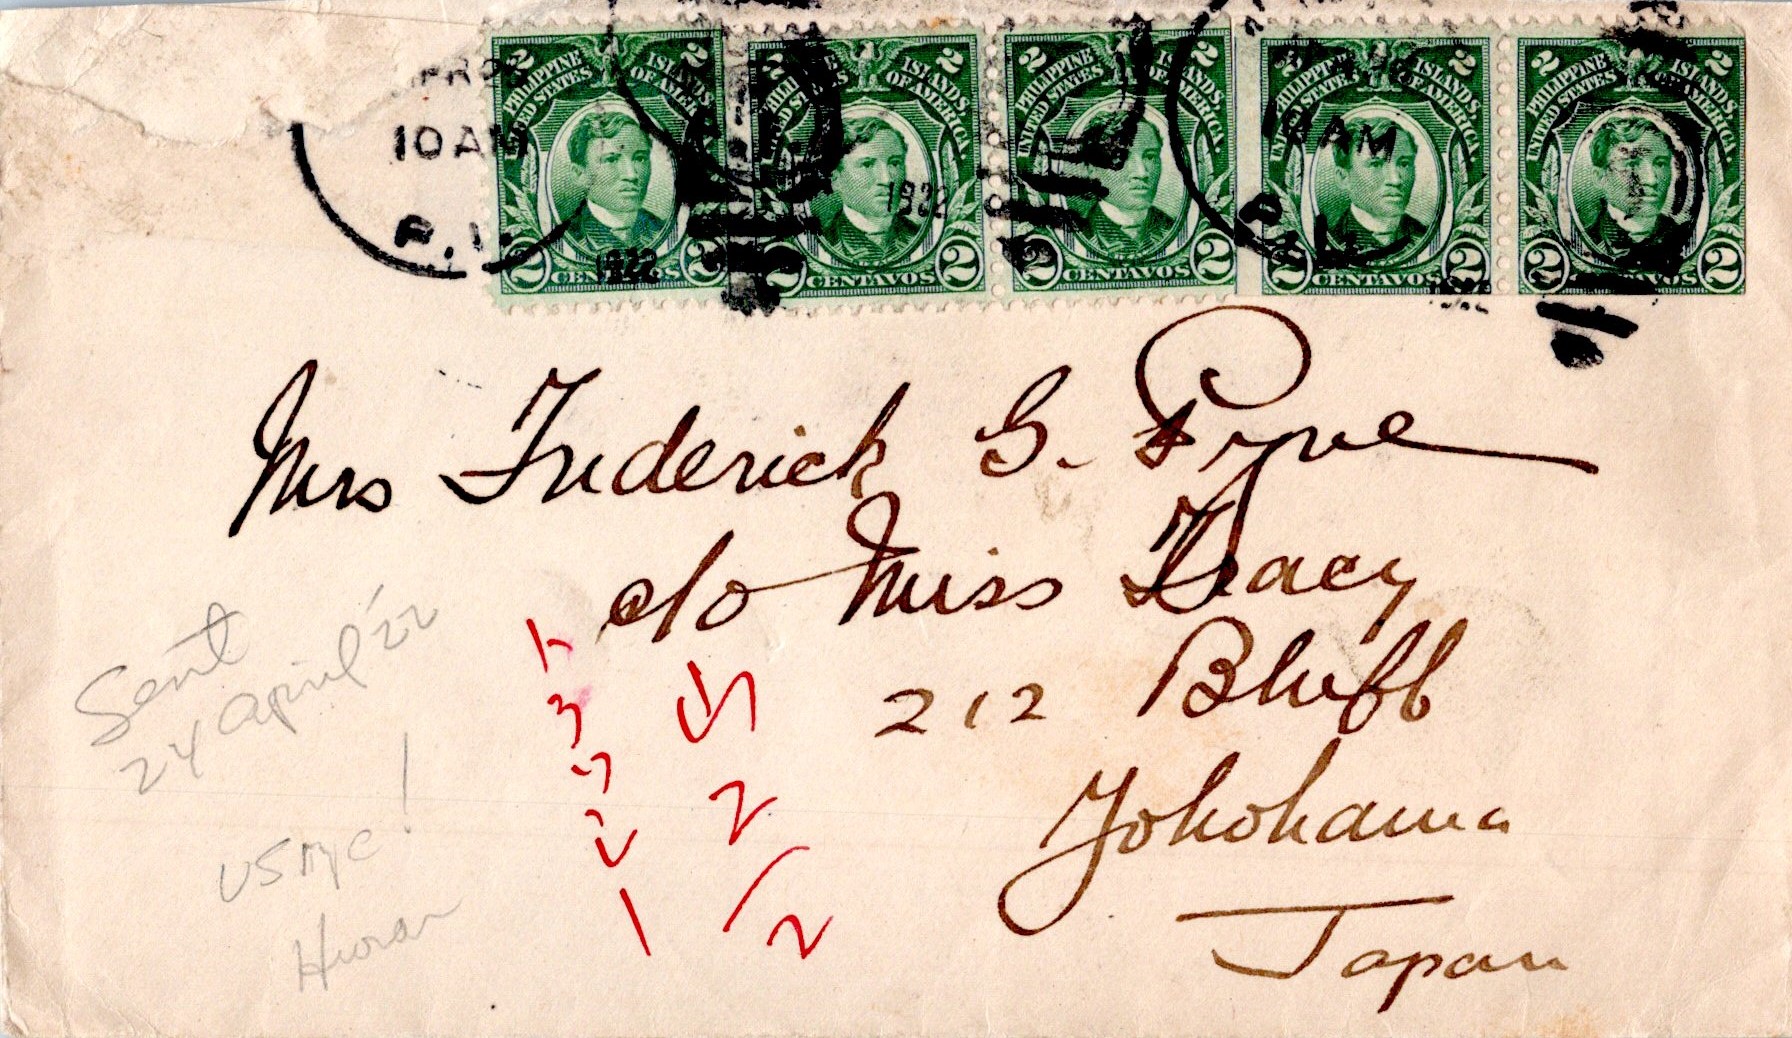 2 PHILIPPINE ISLANDS 2
UNITED STATES OF AMERICA
2 CENTAVOS 2
2 PHILIPPINE ISLANDS 2
UNITED STATES OF AMERICA.
2 CENTAVOS 2
2 PHILIPPINE ISLANDS 2
UNITED STATES OF AMERICA.
2 CENTAVOS 2
2 PHILIPPINE ISLANDS 2
UNITED STATES OF AMERICA.
2 CENTAVOS 2
2 PHILIPPINE ISLANDS 2
UNITED STATES OF AMERICA.
2 CENTAVOS 2
10 AM
P.I.
1922
1922
AM
P.I.
1922
Mrs Frederick G. Pyne
c/o Miss Tracy
212 Bluff
Yokohama
Japan
Sent
24 April '22